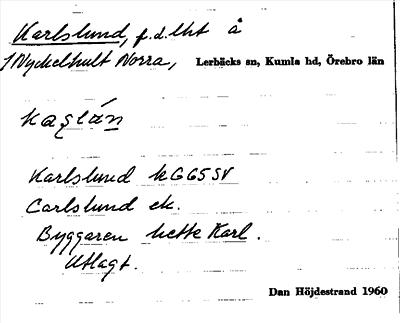 Karlslund, f.d. lht å
Nyckelhult Norra, Lerbäcks sn, Kumla hd, Örebro län
kaşlán
Karlslund kG65SV
Carlslund ek.
Byggaren hette Karl.
Utlagt.
Dan Höjdestrand 1960